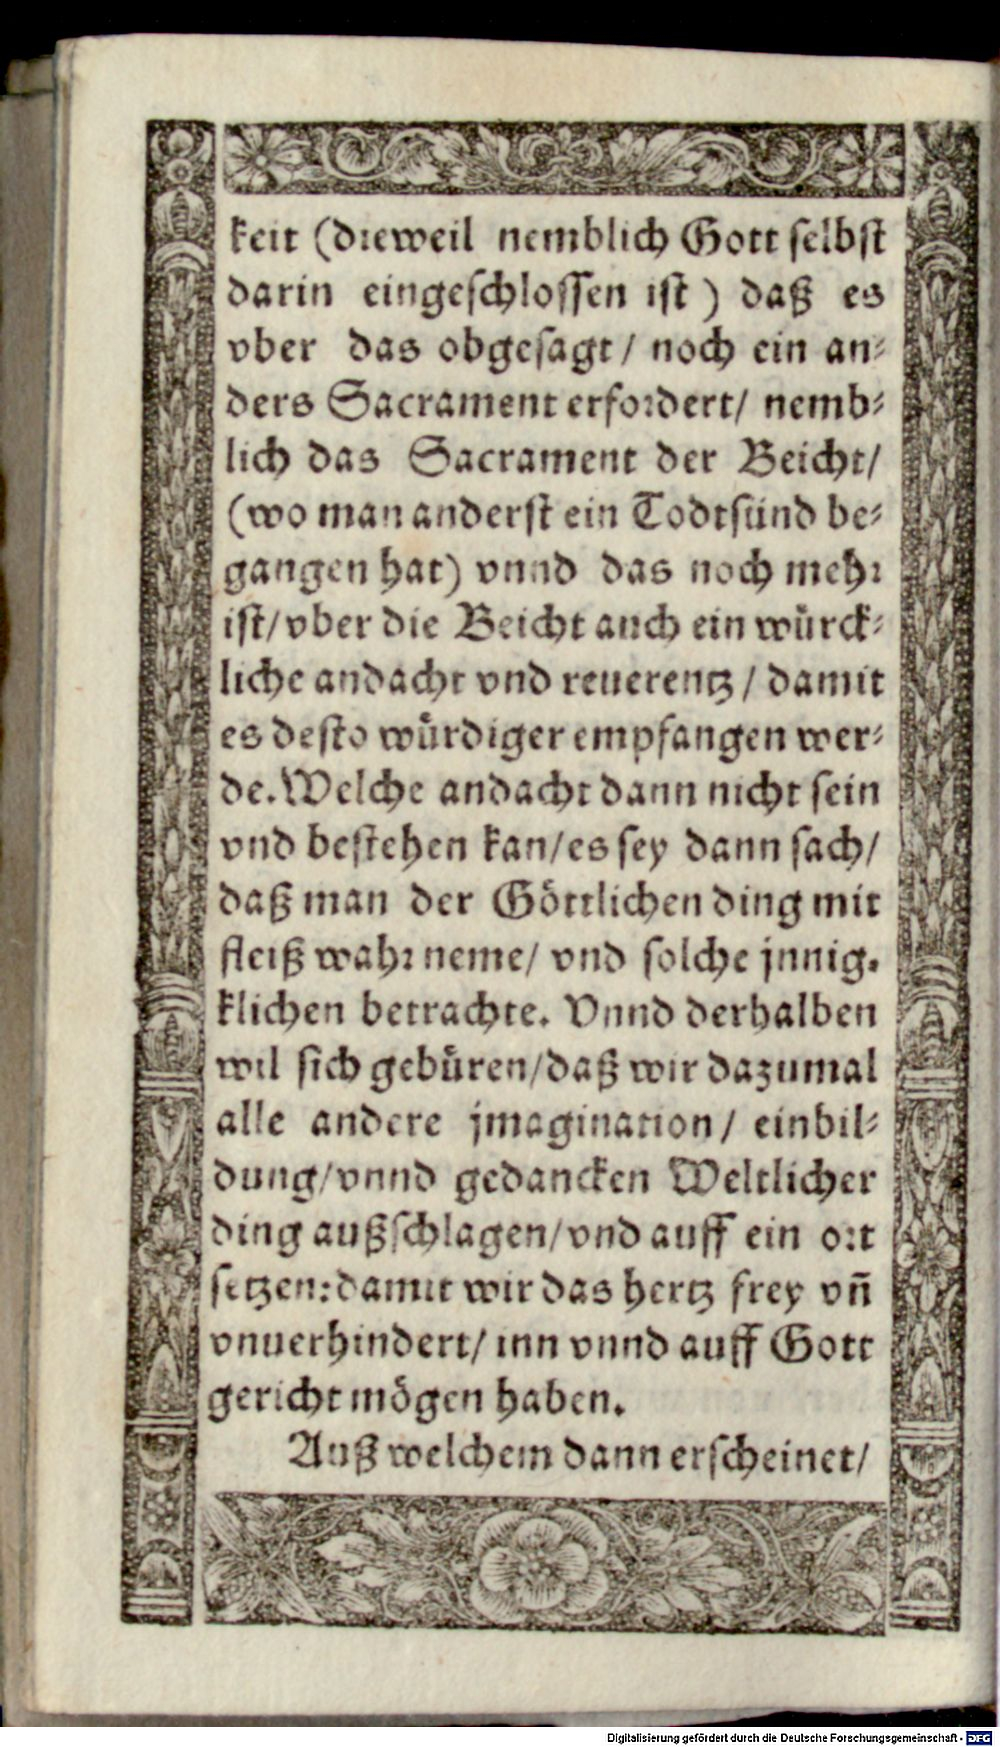 keit (dieweil nemblich Gott selbst
darin eingeschlossen ist) daß es
vber das obgesagt/ noch ein an⸗
ders Sacrament erfordert/ nemb⸗
lich das Sacrament der Beicht/
(wo man anderst ein Todtsünd be⸗
gangen hat) vnnd das noch mehr
ist/ vber die Beicht auch ein wuͤrck⸗
liche andacht vnd reuerentz/ damit
es desto wuͤrdiger empfangen wer⸗
de. Welche andacht dann nicht sein
vnd bestehen kan/ es sey dann sach/
daß man der Goͤttlichen ding mit
fleiß wahr neme/ vnd solche jnnig.
klichen betrachte. Vnnd derhalben
wil sich gebuͤren/ daß wir dazumal
alle andere jmagination/ einbil⸗
dung/ vnnd gedancken Weltlicher
ding außschlagen/ vnd auff ein ort
setzen: damit wir das hertz frey vñ
vnuerhindert/ inn vnnd auff Gott
gericht moͤgen haben.
Auß welchem dann erscheinet/
Digitalisierung gefördert durch die Deutsche Forschungsgemeinschaft - DFG